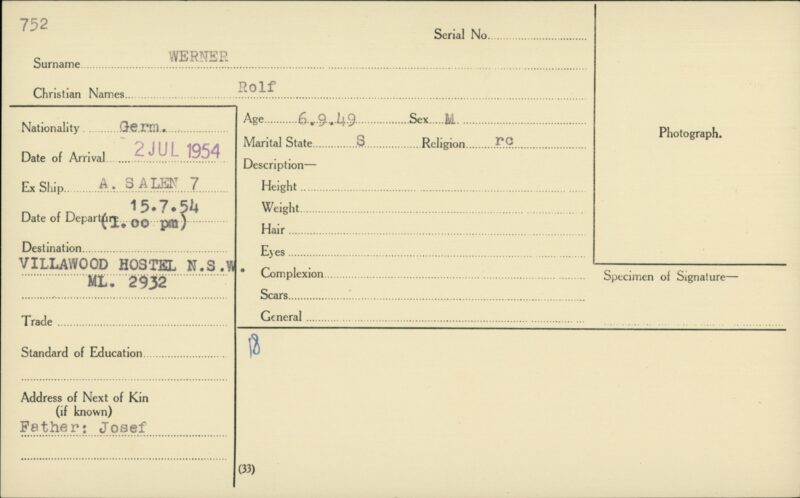 752
Serial No.
Surname WERNER
Christian Names Rolf
Nationality Germ.
Date of Arrival 2 JUL 1954
Ex Ship A. SALEN 7
Date of Departure 15.7.54
(1.00 pm)
Destination
VILLAWOOD HOSTEL N.S.W.
ML. 2932
Trade
Standard of Education
Address of Next of Kin
(if known)
Father: Josef
Age 6.9.49 Sex M
Marital State S Religion rc
Description—
Height
Weight
Hair
Eyes
Complexion
Scars
General
Photograph.
Specimen of Signature—
(33)